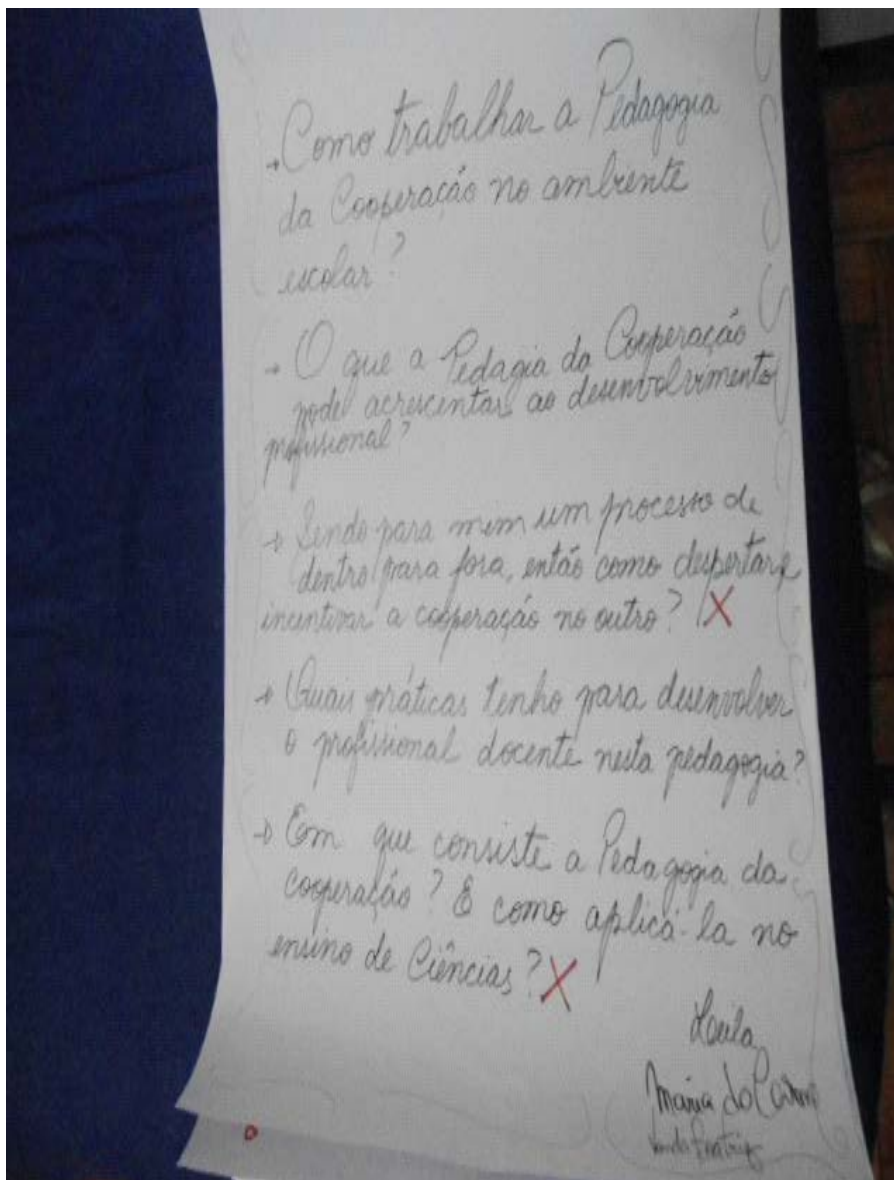 → Como trabalhar a Pedagogia
da Cooperação no ambiente
escolar?
→ O que a Pedagia da Cooperação
pode acrescentar ao desenvolvimento
profissional?
→ Sendo para mem um processo de
dentro para fora, então como despertar e
incentivar a cooperação no outro? X
→ Quais práticas tenho para desenvolver
o profissional docente nesta pedagogia?
→ Em que consiste a Pedagogia da
cooperação? E como aplicá-la no
ensino de Ciências? X
Leila
Maria do Carmo
Beatriz